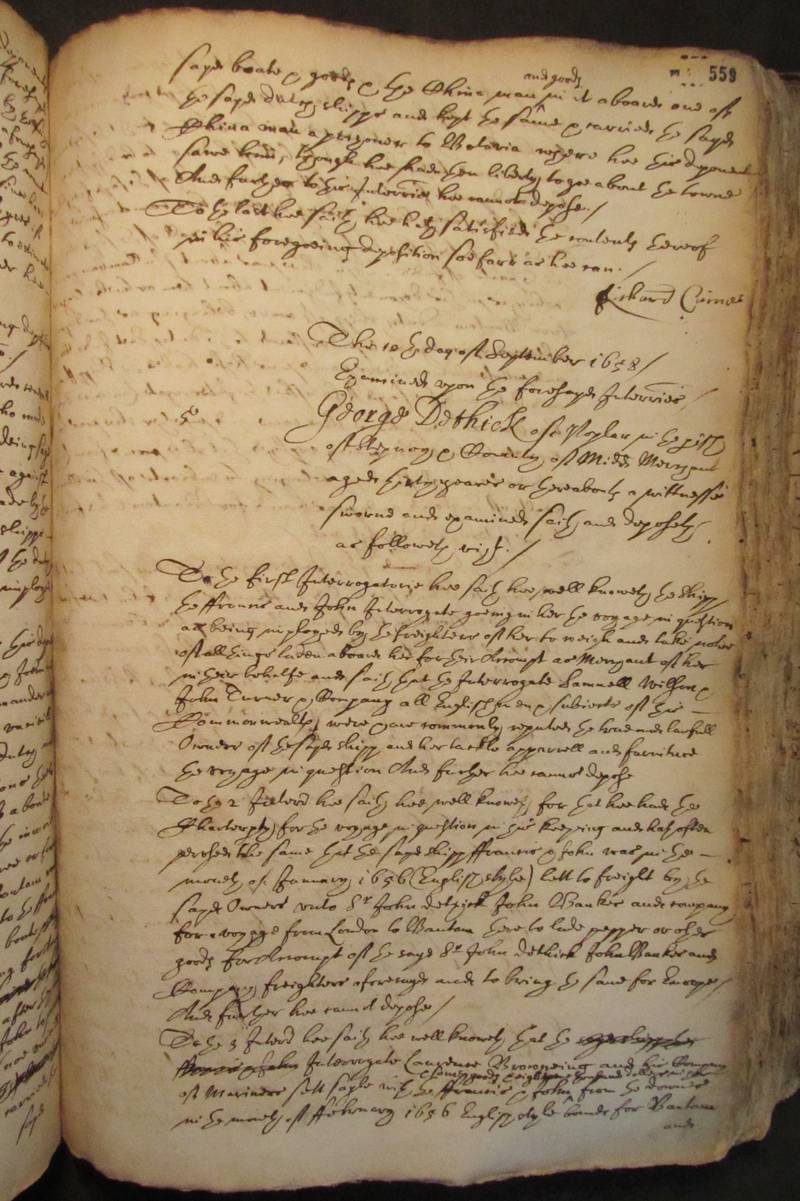 559
and goods
sayd boate & goods & the China man in it aboard one of
the sayd dutch shipps and kept the same & carried the sayd
China man a prisoner to Batavia where hee this deponent
sawe him, though hee had then liberty to goe about the towne
And further to this Interrie hee cannot depose./
To the last hee saith hee hath satisfied the contents thereof
in his foregoeing deposition soe farr as hee can./
Richard
The 10th day of September 1658/
Examined upon the foresayd Interries/
5
George Dethick of Poplar in the pish
of Stepney & County of Midds Merchant
aged thirty yeares or thereabouts a wittnesse
sworne and examined saith and deposeth
as followeth vizt./
To the first Interrogatorie hee saith hee well knoweth the shipp
the ffrancis and John Interrogate goeing in her the voyage in question
as being imployed by the freighters of her to weigh and take notice
of all things laden aboard her for their Accompt as Merchant of her
in their behalfe and saith that the Interrogate Samuell Wilson &
John Turner & Company all English men & subiects of this
Commonwealth were & are commonly reputed the true and lawfull
Owners of the sayd shipp and her tackle apparrell and furniture
the voyage in question And further hee cannot depose
To the 2 Interrie hee saith hee well knoweth for that hee had the
Charterpty for the voyage in question in his keeping and hath often
perused the same that the sayd shipp ffrancis & John was in the
moneth of January 1656 (English style) lett to freight by the
sayd Owners unto Sr John dethick John Banker and company
for a voyage from London to Bantam there to lade pepper or other
goods for Accompt of the sayd Sr John dethick John Banker and
Company freighters aforesayd and to bring the same for Europe/
And further hee cannot depose/
To the 3 Interrie hee saith hee well knoweth that the
Interrogate Laurence Browneing and his Company
of Mariners sett sayle with the ffrancis & John from the downes
in the moneth of ffebruary 1656 English style bound for Bantam
and